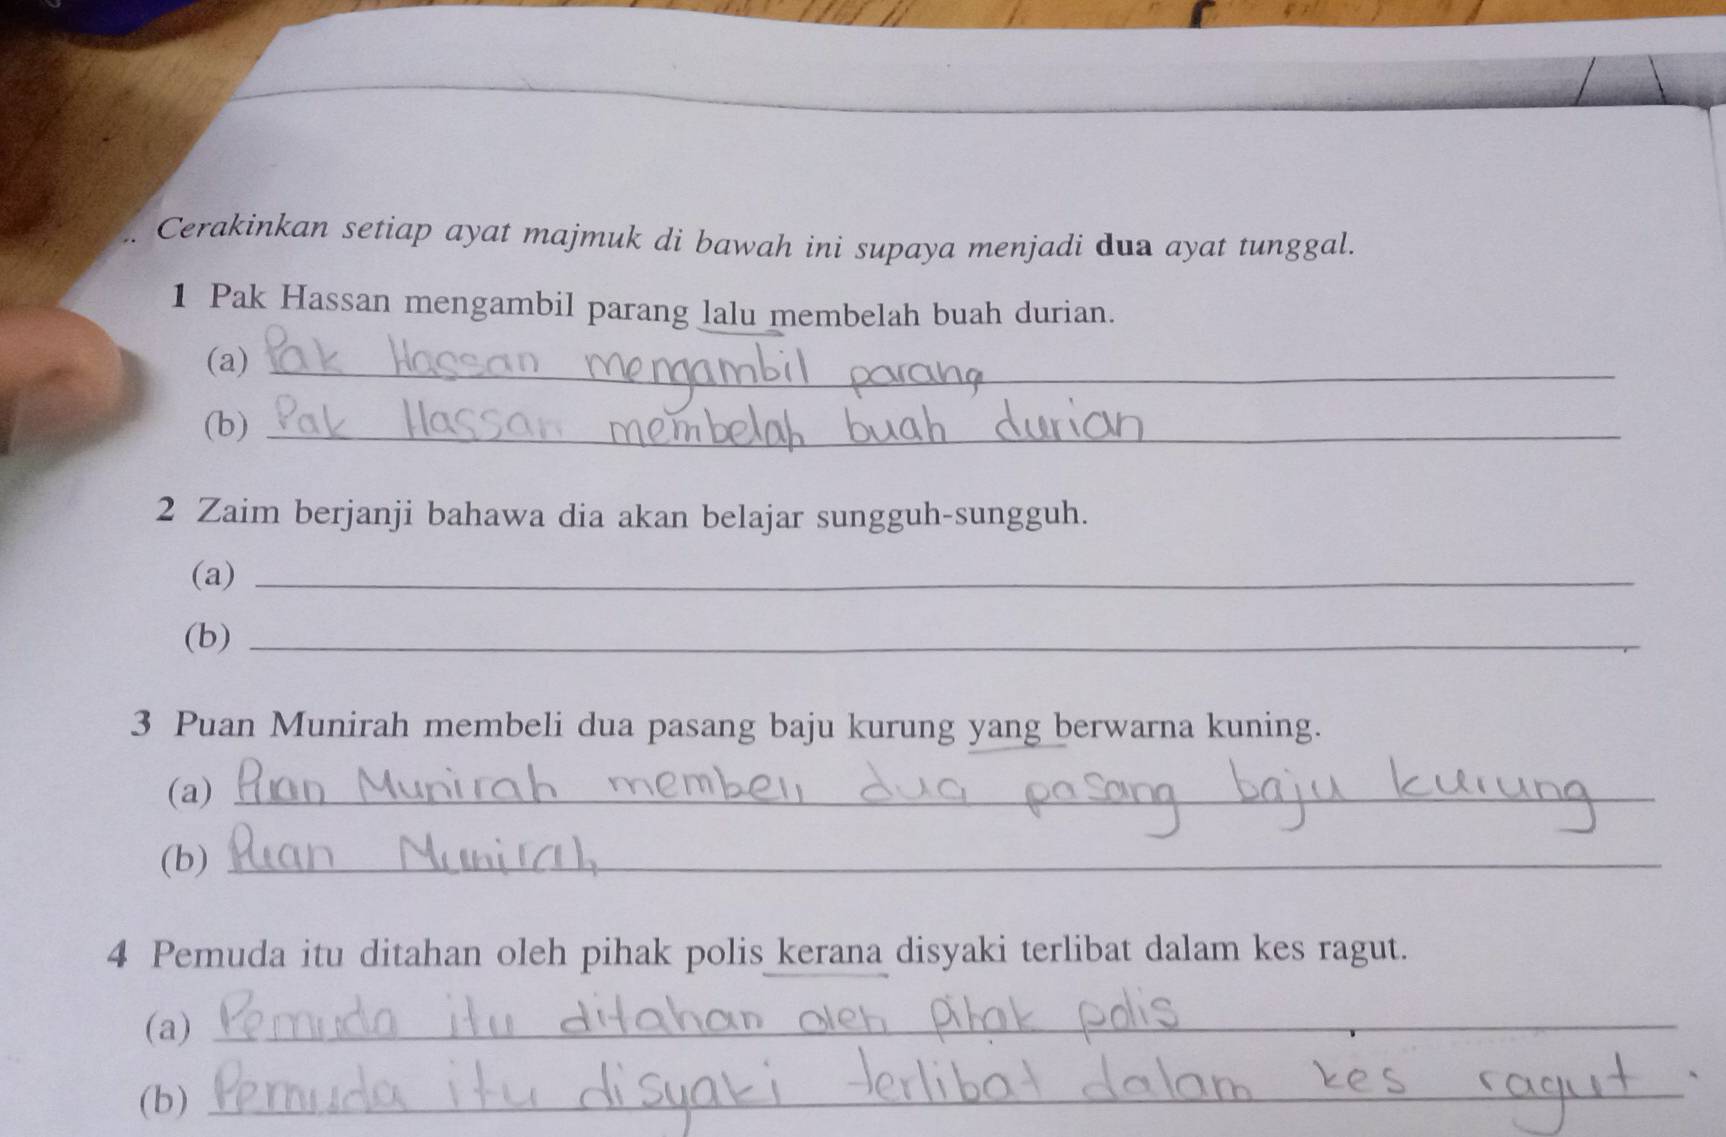 Cerakinkan setiap ayat majmuk di bawah ini supaya menjadi dua ayat tunggal.
1 Pak Hassan mengambil parang lalu membelah buah durian.
(a) Pak Hassan mengambil parang
(b) Pak Hassan membelah buah durian
2 Zaim berjanji bahawa dia akan belajar sungguh-sungguh.
(a)
(b)
3 Puan Munirah membeli dua pasang baju kurung yang berwarna kuning.
(a) Puan Munirah membeli dua pasang baju kurung
(b) Puan Munirah
4 Pemuda itu ditahan oleh pihak polis kerana disyaki terlibat dalam kes ragut.
(a) Pemuda itu ditahan oleh pihak polis
(b) Pemuda itu disyaki terlibat dalam kes ragut.